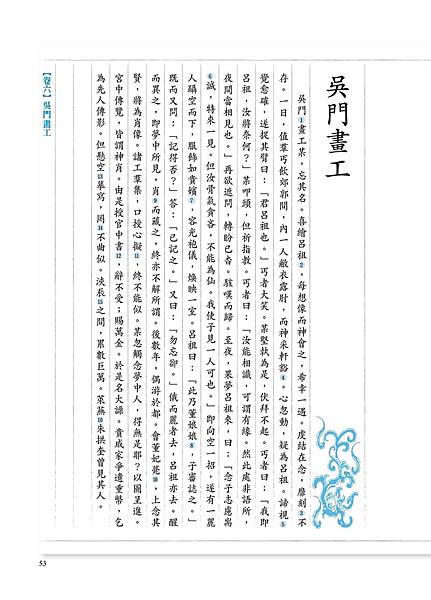 吳門畫工
吳門①畫工某，忘其名。喜繪呂祖②，每想像而神會之，希幸一遇。虔結在念，靡刻③不
存。一日，值羣丐飲郊郭間，內一人敝衣露肘，而神采軒豁④。心忽動，疑為呂祖。諦視⑤
覺愈確，遂捉其臂曰：「君呂祖也。」丐者大笑。某堅執為是，伏拜不起。丐者曰：「我即
呂祖，汝將奈何？」某叩頭，但祈指教。丐者曰：「汝能相識，可謂有緣。然此處非語所，
夜間當相見也。」再欲遮問，轉盼已杳。駭嘆而歸。至夜，果夢呂祖來，曰：「念子志慮耑
⑥誠，特來一見。但汝骨氣貪吝，不能為仙。我使子見一人可也。」即向空一招，遂有一麗
人躡空而下，服飾如貴嬪⑦，容光袍儀，煥映一室。呂祖曰：「此乃董娘娘⑧，子審誌之。」
既而又問：「記得否？」答：「已記之。」又曰：「勿忘卻。」俄而麗者去，呂祖亦去。醒
而異之，即夢中所見，肖⑨而藏之，終亦不解所謂。後數年，偶游於都。會董妃薨⑩，上念其
賢，將為肖像。諸工羣集，口授心擬⑪，終不能似。某忽觸念夢中人，得無是耶？以圖呈進。
宮中傳覽，皆謂神肖。由是授官中書⑫，辭不受；賜萬金。於是名大譟。貴戚家爭遺重幣，乞
為先人傳影。但懸空⑬摹寫，罔⑭不曲似。浹辰⑮之間，累數巨萬。萊蕪⑯朱拱奎曾見其人。
【卷六】吳門畫工
53